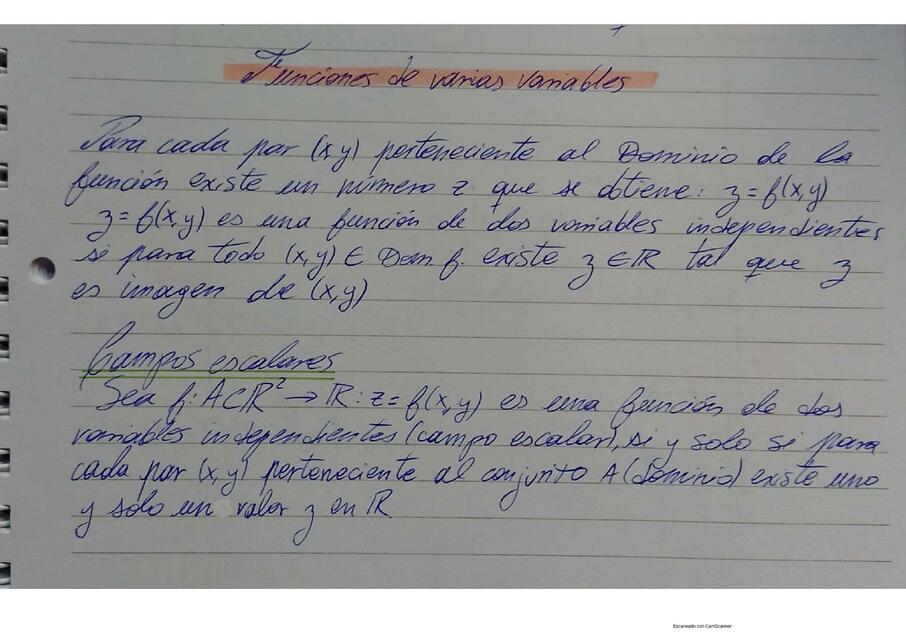 Funciones de varias variables
Para cada par (x,y) perteneciente al Dominio de la
función existe un número z que se obtiene: z = f(x,y)
z = f(x,y) es una función de dos variables independientes
si para todo (x,y) ∈ Dom f. existe z ∈ ℝ tal que z
es imagen de (x,y)
Campos escalares
Sea f: A⊂ℝ² → ℝ : z = f(x,y) es una función de dos
variables independientes (campo escalar), si y solo si para
cada par (x,y) perteneciente al conjunto A (dominio) existe uno
y solo un valor z en ℝ.
Escaneado con CamScanner